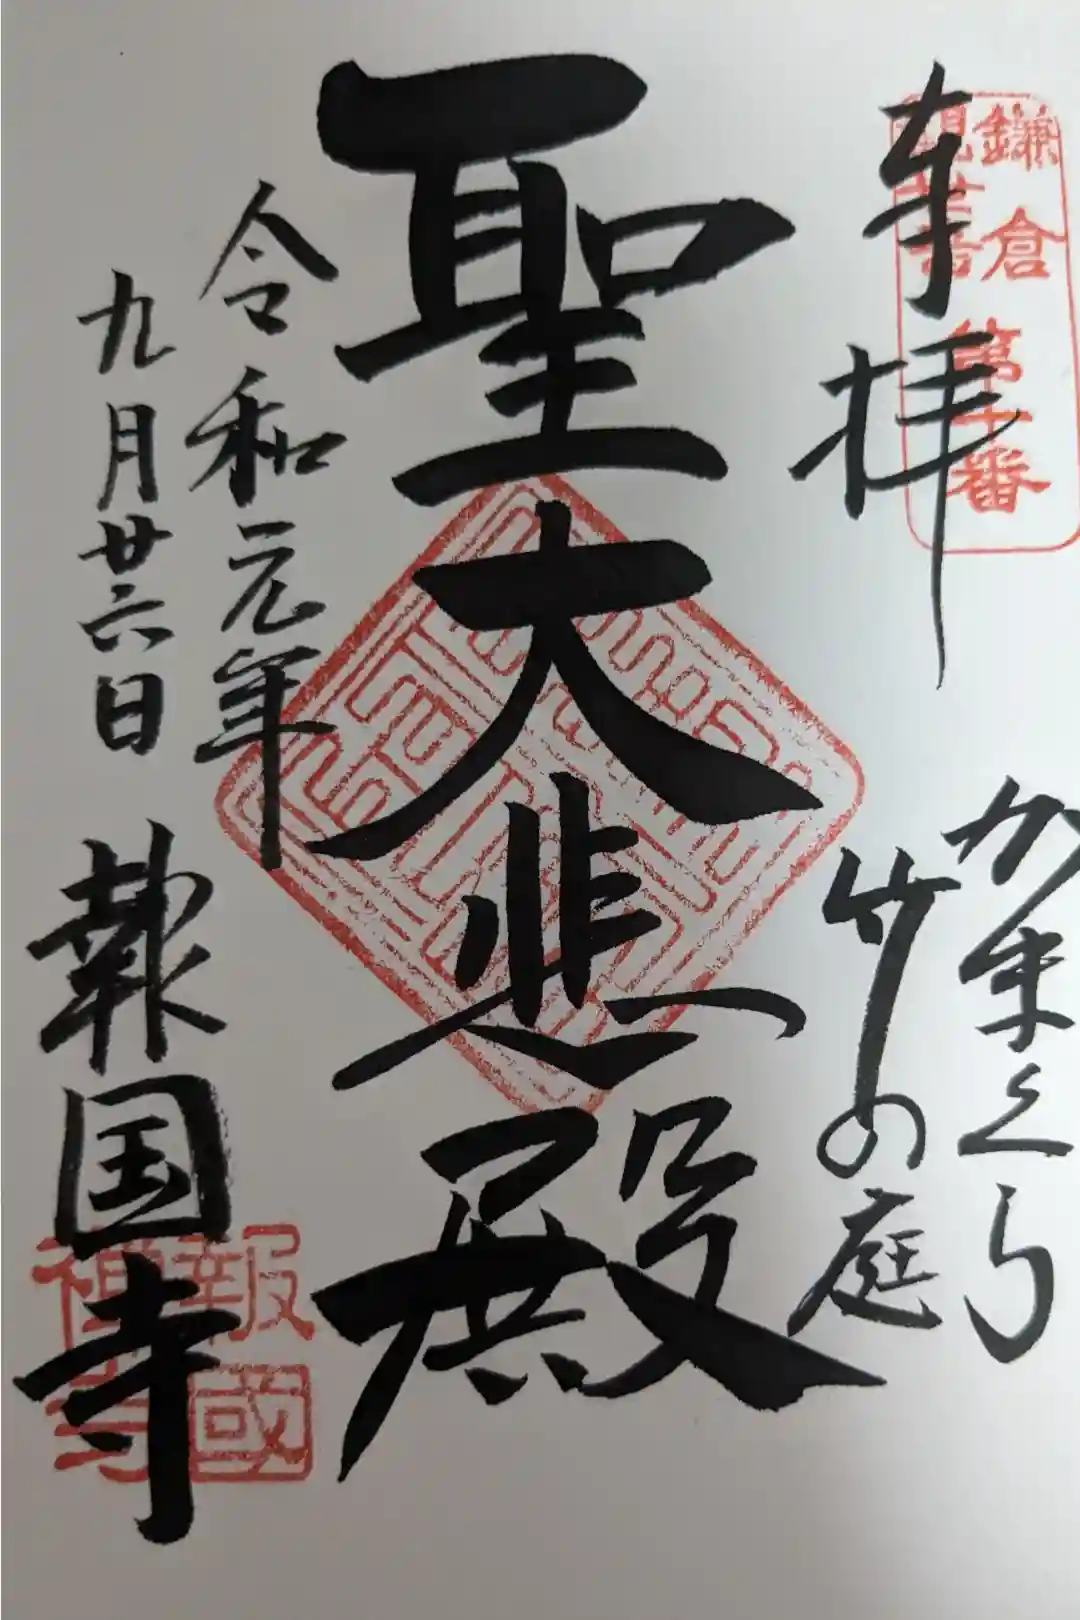 奉拝
鎌倉
観世音
第十番
かまくら
竹の庭
聖大悲殿
令和元年
九月廿六日
報国寺
報國
禅寺